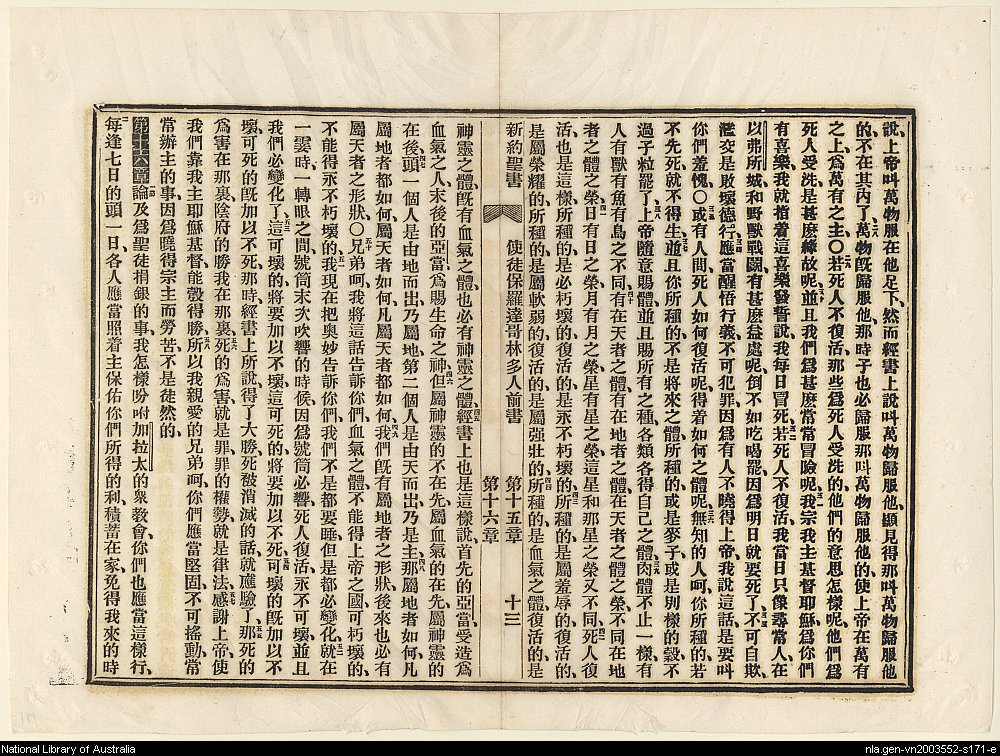 說上帝叫萬物服在他足下、然而經書上說叫萬物歸服他、顯見得那叫萬物歸服他
的、不在其內了、萬物旣歸服他、那時子也必歸服那叫萬物歸服他的、使上帝在萬有
之上、爲萬有之主〇若死人不復活、那些爲死人受洗的、他們的意思怎樣呢、他們爲
死人受洗、是甚麽緣故呢、並且我們爲甚麽常常冒險呢、我宗我主基督耶穌、爲你們
有喜樂、我就指着這喜樂發誓說、我每日冒死、若死人不復活、我當日只像尋常人、在
以弗所城、和野獸戰鬭、有甚麽益處呢、倒不如吃喝罷、因爲明日就要死了、不可自欺、
濫交是敗壞德行、應當醒悟行義、不可犯罪、因爲有人不曉得上帝、我說這話、是要叫
你們羞愧〇或有人問、死人如何復活呢、得着如何之體呢、無知的人呵、你所種的、若
不先死、就不得生、並且你所種的、不是將來之體、所種的、或是麥子、或是別樣的穀、不
過子粒罷了、上帝隨意賜體、並且賜所有之種、各類各得自己之體、肉體不止一樣、有
人有獸有魚有鳥之不同、有在天者之體、有在地者之體、在天者之體之榮、不同在地
者之體之榮、日有日之榮、月有月之榮、星有星之榮、這星和那星之榮又不同、死人復
活、也是這樣、所種的是必朽壞的、復活的是永不朽壞的、所種的是屬羞辱的、復活的
是屬榮耀的、所種的是屬軟弱的、復活的是屬强壯的、所種的是血氣之體、復活的是
新約聖書 使徒保羅達哥林多人前書 第十五章 十三
第十六章
神靈之體、旣有血氣之體、也必有神靈之體、經書上也是這樣說、首先的亞當、受造爲
血氣之人、末後的亞當、爲賜生命之神、但屬神靈的不在先、屬血氣的在先、屬神靈的
在後、頭一個人是由地而出、乃屬地、第二個人是由天而出、乃是主、那屬地者如何、凡
屬地者都如何、屬天者如何、凡屬天者都如何、我們旣有屬地者之形狀、後來也必有
屬天者之形狀、〇兄弟呵、我將這話告訴你們、血氣之體、不能得上帝之國、可朽壞的、
不能得永不朽壞的、我現在把奧妙告訴你們、我們不是都要睡、但是都必變化、就在
一霎時、一轉眼之間、號筒末次吹響的時候、因爲號筒必響、死人復活、永不可壞、並且
我們必變化了、這可壞的將要加以不壞、這可死的將要加以不死、可壞的旣加以不
壞、可死的旣加以不死、那時經書上所說、得了大勝、死被消滅的話就應驗了、那死的
爲害在那裏、陰府的勝我在那裏、死的爲害就是罪、罪的權勢就是律法、感謝上帝、使
我們靠我主耶穌基督能彀得勝、所以我親愛的兄弟呵、你們應當堅固、不可搖動、常
常辦主的事、因爲曉得宗主而勞苦、不是徒然的、
第十六章論及爲聖徒捐銀的事、我怎樣吩咐加拉太的衆教會、你們也應當這樣行、
每逢七日的頭一日、各人應當照着主保佑你們所得的利、積蓄在家、免得我來的時
National Library of Australia
nla.gen-vn2003552-s171-e